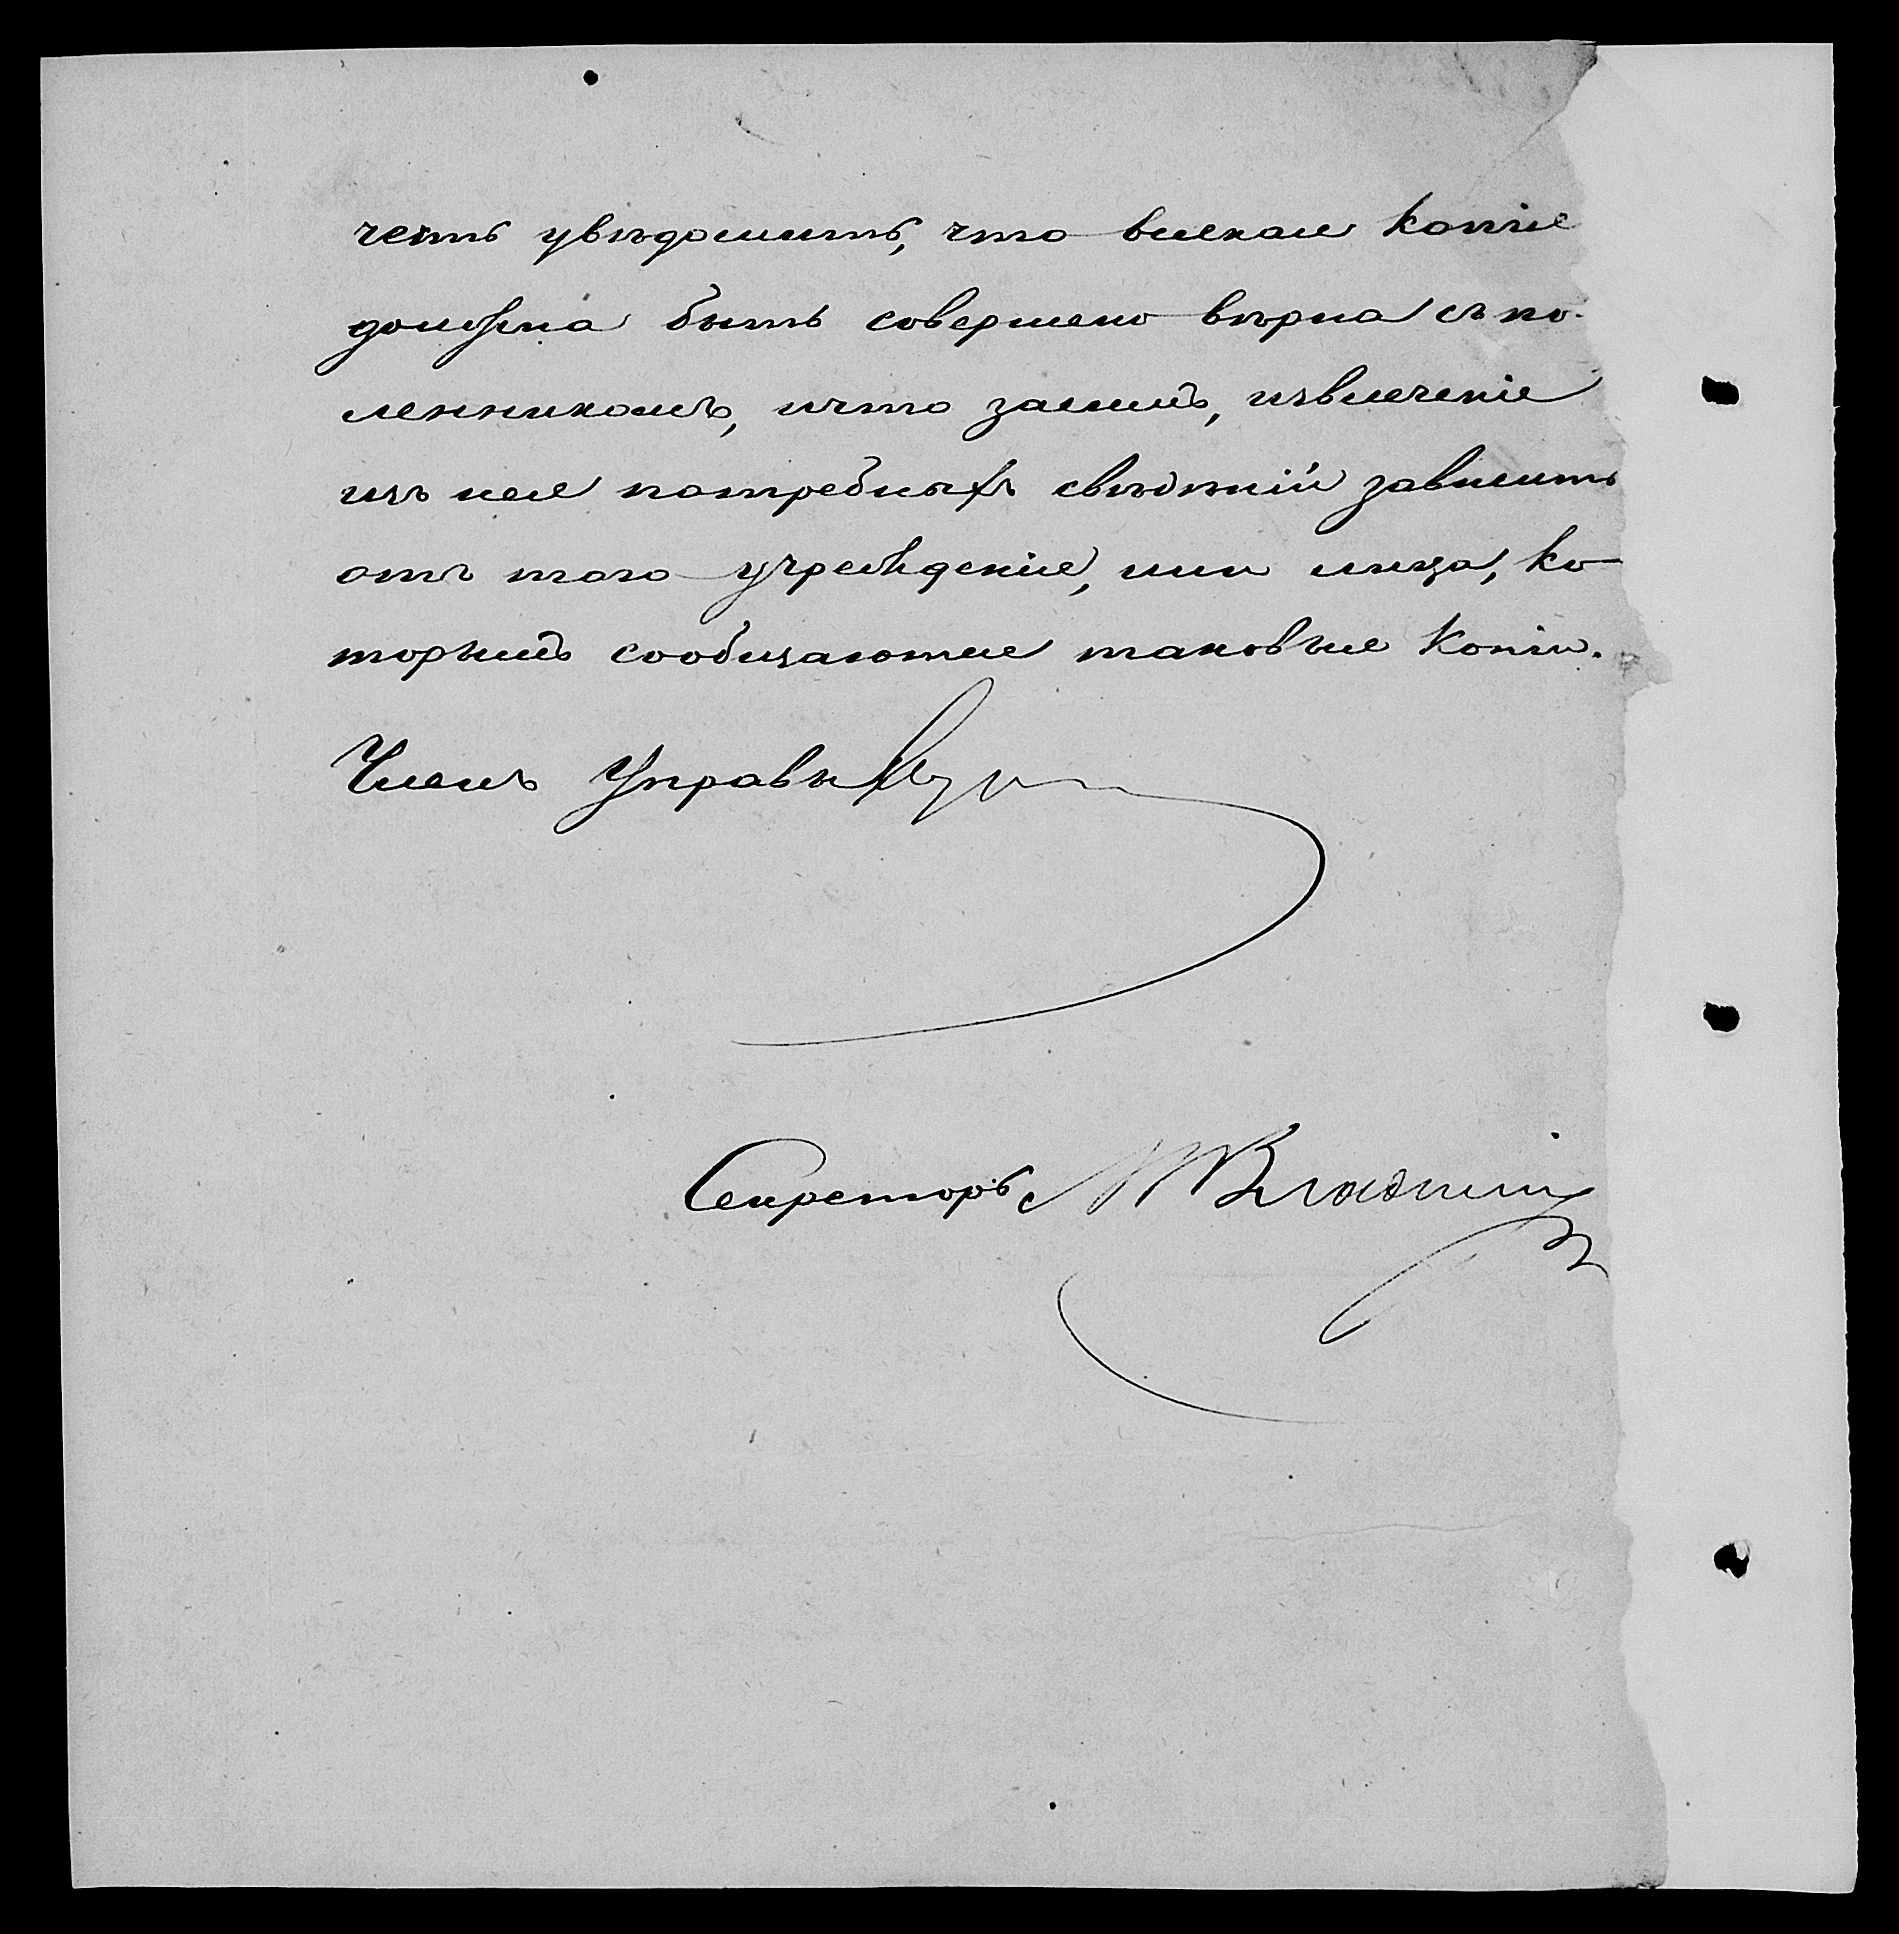 честь увѣдомить, что всякая копія
должна быть совершено вѣрна съ по-
ленникомъ, что засимъ, извлеченіе
изъ нея потребныхъ свѣдѣній зависитъ
отъ того учрежденія, или лица, ко-
торымъ сообщаются таковыя копіи.
Членъ Управы
Секретарь